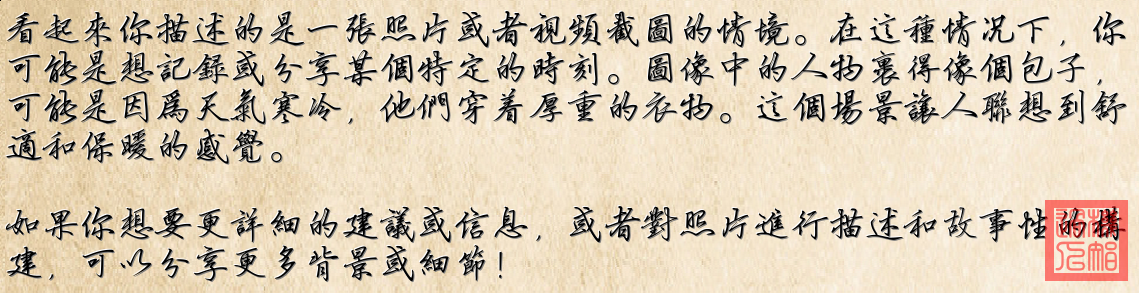 看起來你描述的是一張照片或者視頻截圖的情境。在這種情况下，你
可能是想記錄或分享某個特定的時刻。圖像中的人物裹得像個包子，
可能是因爲天氣寒冷，他們穿着厚重的衣物。這個場景讓人聯想到舒
適和保暖的感覺。
如果你想要更詳細的建議或信息，或者對照片進行描述和故事性的構
建，可以分享更多背景或細節！